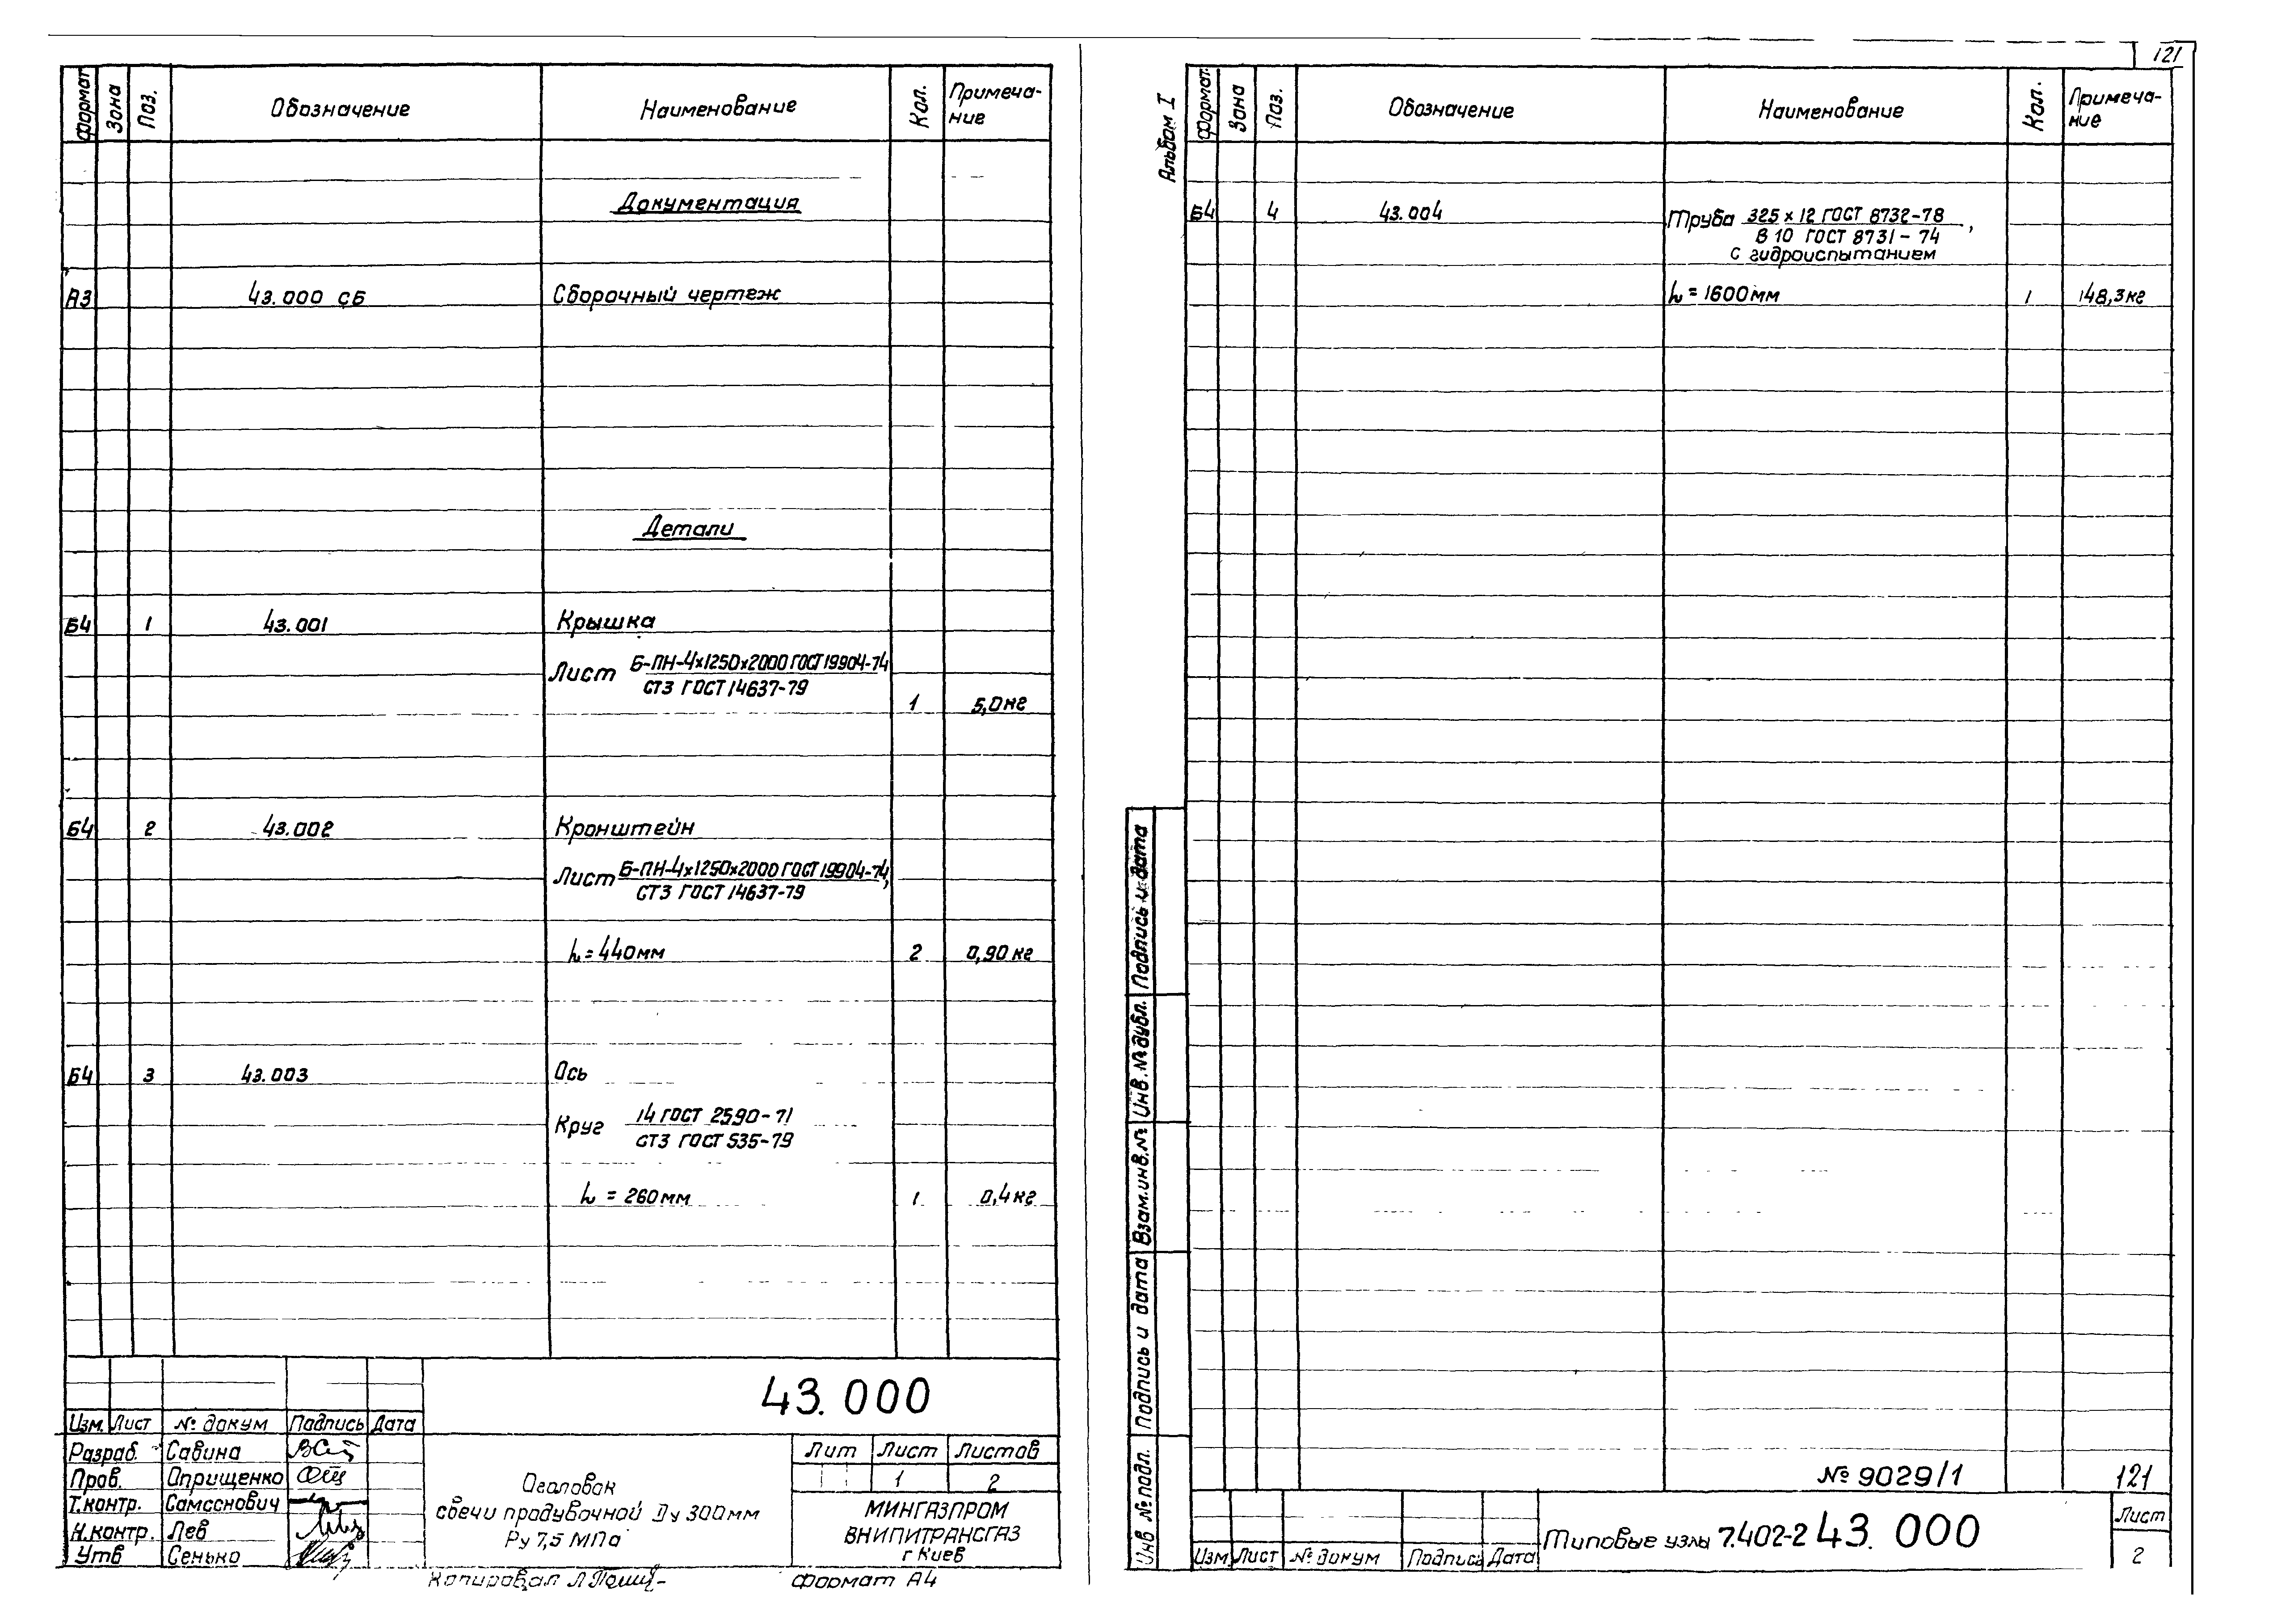 Формат Зона Поз. Обозначение Наименование Кол. Примеча-
ние
Документация
А3 43.000 СБ Сборочный чертеж
Детали
Б4 1 43.001 Крышка
Лист Б-ПН-4х1250х2000 ГОСТ 19904-74
СТ3 ГОСТ 14637-79
1 5,0 кг
Б4 2 43.002 Кронштейн
Лист Б-ПН-4х1250х2000 ГОСТ 19904-74,
СТ3 ГОСТ 14637-79
h = 440 мм 2 0,90 кг
Б4 3 43.003 Ось
Круг 14 ГОСТ 2590-71
СТ3 ГОСТ 535-79
h = 260 мм 1 0,4 кг
43.000
Изм. Лист № докум Подпись Дата
Разраб. Савина
Пров. Оприщенко
Т.контр. Самсонович
Н.контр. Лев
Утв Сенько
Оголовок
свечи продувочной Ду 300мм
Ру 7,5 МПа
Лит Лист Листов
1 2
МИНГАЗПРОМ
ВНИПИТРАНСГАЗ
г Киев
Копировал
Формат А4
121
Альбом I
Формат. Зона Поз. Обозначение Наименование Кол. Примеча-
ние
Б4 4 43.004 Труба 325 х 12 ГОСТ 8732-78,
В 10 ГОСТ 8731-74
с гидроиспытанием
h = 1600 мм 1 148,3 кг
Подпись и дата
Инв. № дубл.
Взам. инв. №
Подпись и дата
Инв № подл.
№ 9029/1 121
Изм Лист № докум Подпись Дата
Типовые узлы 7.402-2 43. 000
Лист
2